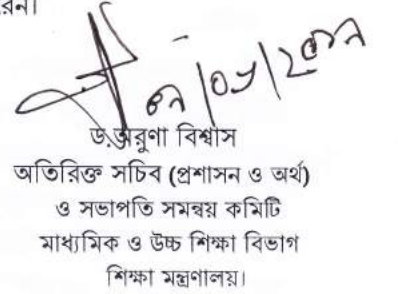 ড.অরুণা বিশ্বাস
অতিরিক্ত সচিব (প্রশাসন ও অর্থ)
ও সভাপতি সমন্বয় কমিটি
মাধ্যমিক ও উচ্চ শিক্ষা বিভাগ
শিক্ষা মন্ত্রণালয়।